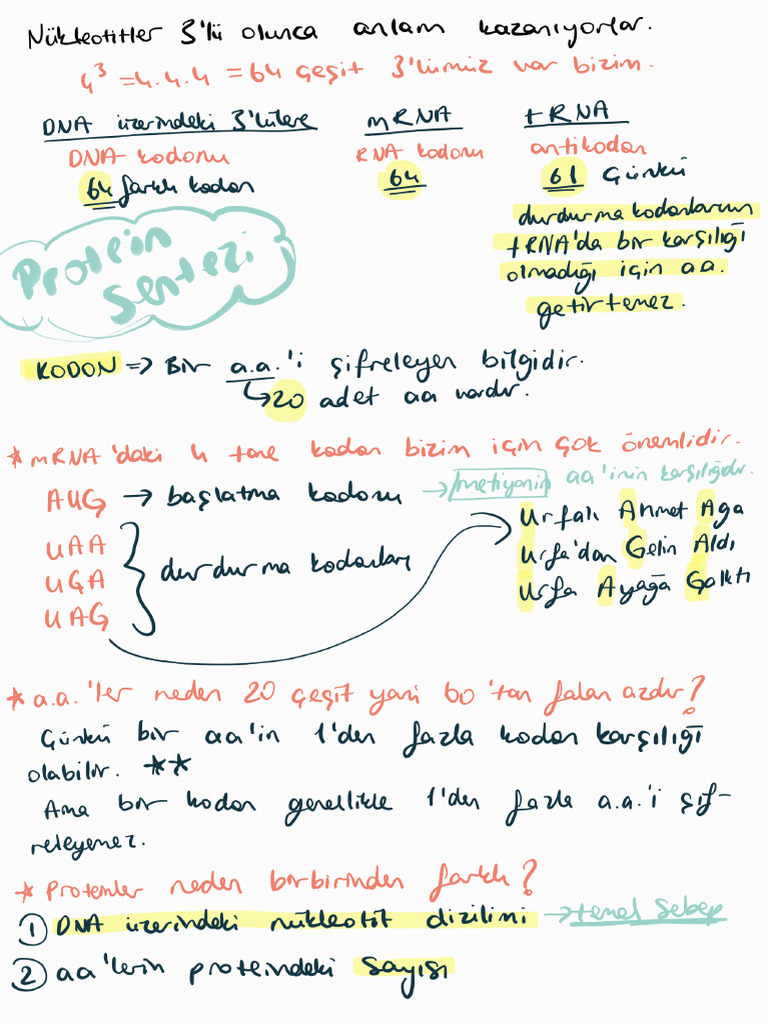 Nükleotitler 3'lü olunca anlam kazanıyorlar.
4³ = 4.4.4 = 64 çeşit 3'lümüz var bizim.
DNA üzerindeki 3'lülere
DNA kodonu
64 farklı kodon
mRNA
RNA kodonu
64
tRNA
antikodon
61 Çünkü
durdurma kodonlarının
tRNA'da bir karşılığı
olmadığı için aa.
getirtemez.
Protein
Sentezi
KODON => Bir a.a.'i şifreleyen bilgidir.
↳ 20 adet aa vardır.
* mRNA'daki 4 tane kodon bizim için çok önemlidir.
AUG → başlatma kodonu → metiyonin aa'inin karşılığıdır.
UAA
UGA
UAG
durdurma kodonları
Urfalı Ahmet Aga
Urfa'dan Gelin Aldı
Urfa Ayağa Kalktı
* a.a.'ler neden 20 çeşit yani 60'tan falan azdır?
Çünkü bir aa'in 1'den fazla kodon karşılığı
olabilir. **
Ama bir kodon genellikle 1'den fazla a.a.'i şif-
releyemez.
* Proteinler neden birbirinden farklı?
1 DNA üzerindeki nükleotit dizilimi → temel sebep
2 aa'lerin proteindeki sayısı